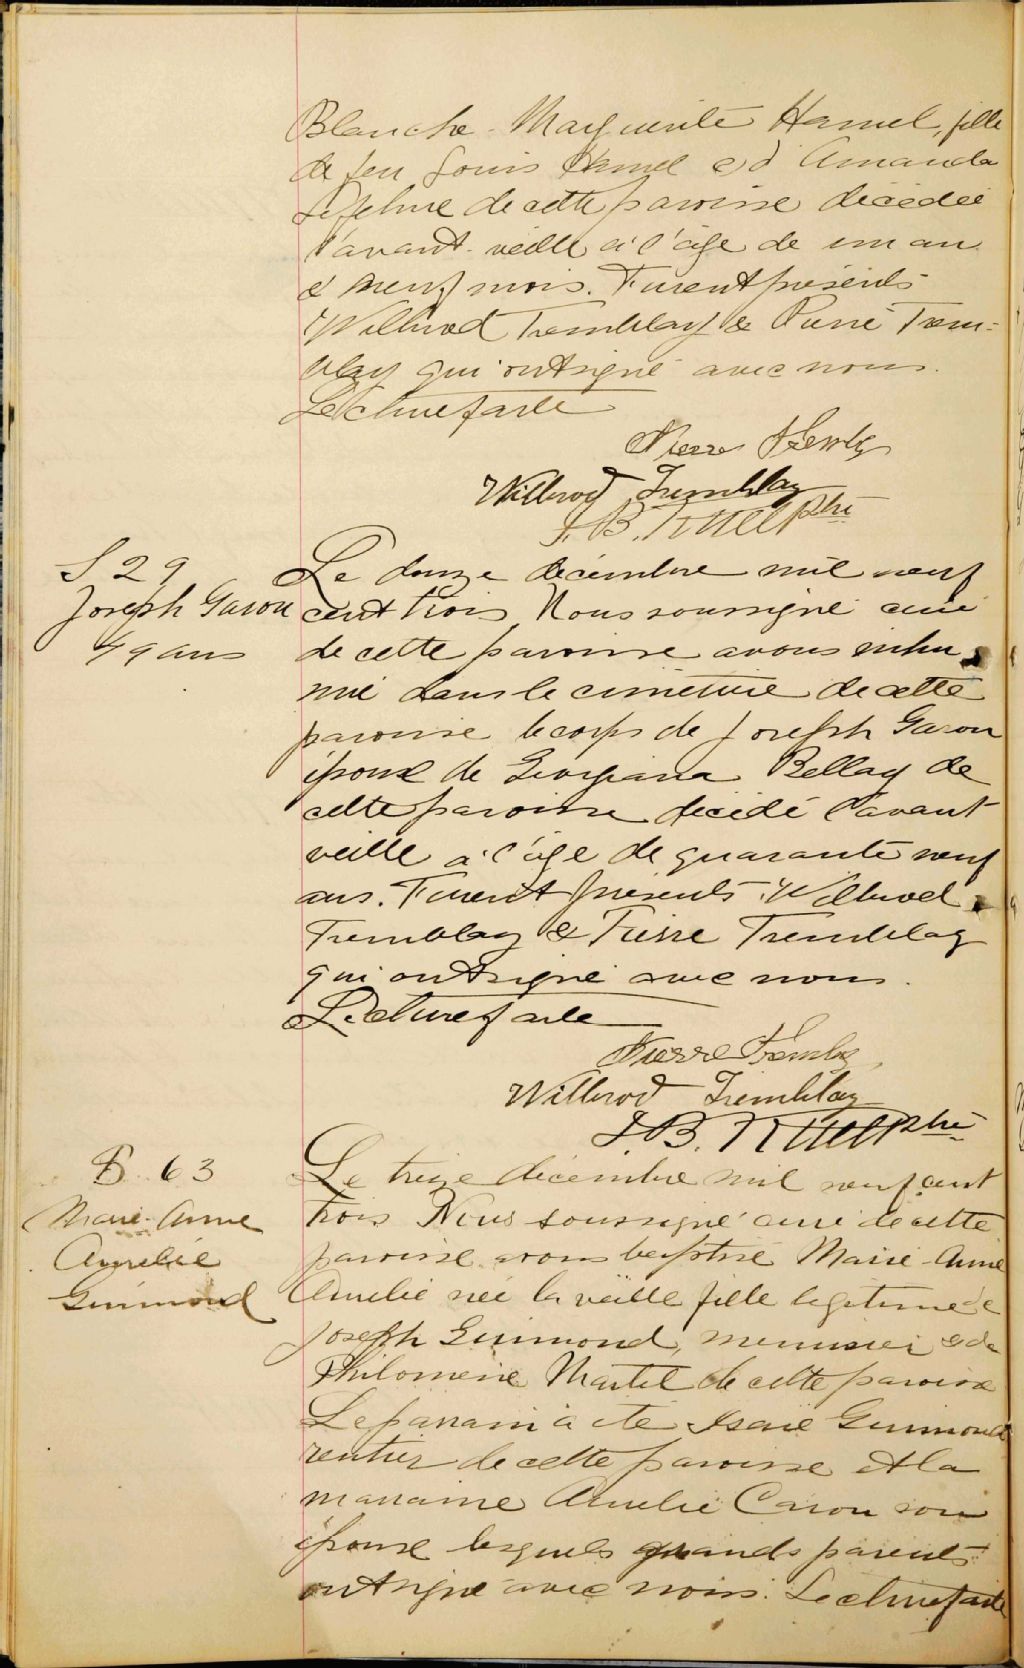 Blanche Marguerite Hamel, fille
de feu Louis Hamel & d'Amanda
Lefebvre de cette paroisse décédée
l'avant-veille à l'âge de un an
& neuf mois. Furent présents
Wilbrod Tremblay & Pierre Trem-
blay qui ont signé avec nous.
Lecture faite
Pierre Tremblay
Wilbrod Tremblay
J. B. Ruell Ptre
S 29
Joseph Garon
49 ans
Le douze décembre mil neuf
cent trois Nous soussigné curé
de cette paroisse avons inhu
mé dans le cimetière de cette
paroisse le corps de Joseph Garon
époux de Georgiana Bellay de
cette paroisse décédé l'avant
veille à l'âge de quarante neuf
ans. Furent présents Wilbrod
Tremblay & Pierre Tremblay
qui ont signé avec nous.
Lecture faite
Pierre Tremblay
Wilbrod Tremblay
J. B. Ruell Ptre
B. 63
Marie-Anne
Aurelie
Guimond
Le treize décembre mil neuf cent
trois Nous soussigné curé de cette
paroisse avons baptisé Marie-Anne
Aurelie née la veille fille légitime de
Joseph Guimond, menuisier & de
Philomène Martel de cette paroisse
Le parrain a été Isaïe Guimond
rentier de cette paroisse et la
marraine Aurelie Caron son
épouse lesquels grands parents
ont signé avec nous. Lecture faite